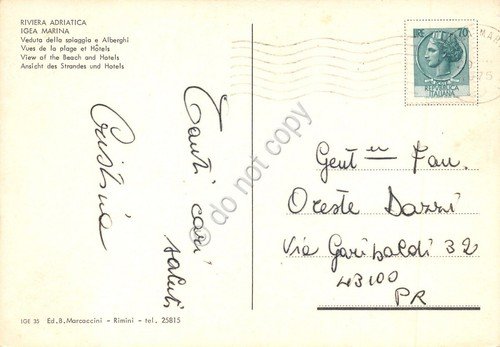 RIVIERA ADRIATICA
IGEA MARINA
Veduta della spiaggia e Alberghi
Vues de la plage et Hôtels
View of the Beach and Hotels
Ansicht des Strandes und Hotels
LIRE 70
REPUBBLICA
ITALIANA
Tanti cari
saluti
Cristina
Gent en Fam.
Oreste Dazzi
Via Garibaldi 32
43100
PR
IGE 35 Ed. B. Marcaccini - Rimini - tel. 25815
© do not copy